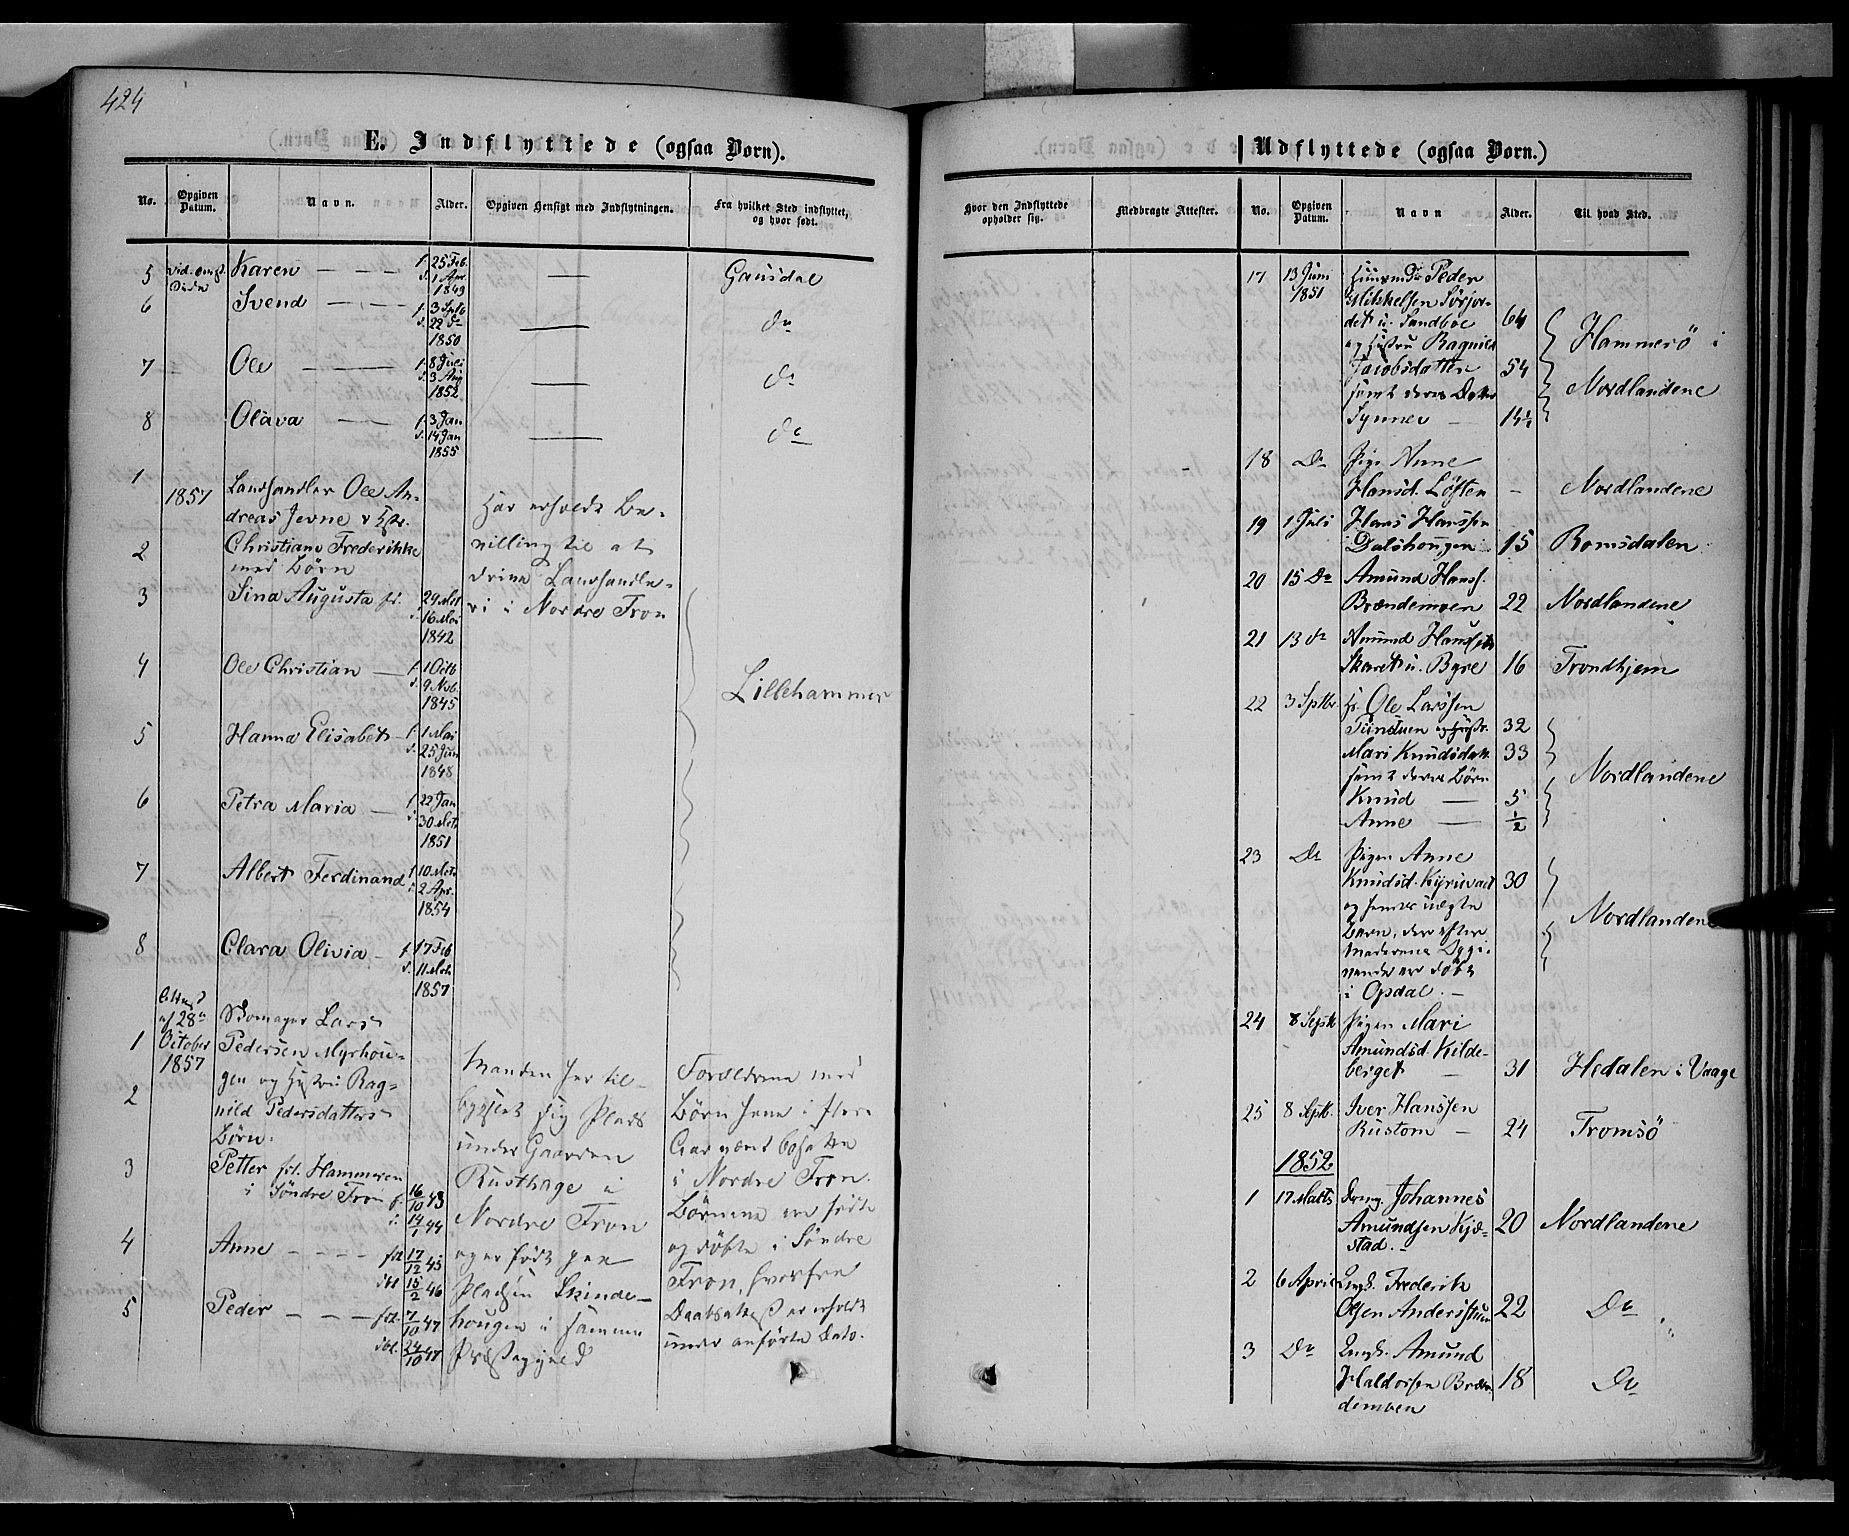 424
E. Indflyttede (ogsaa Børn).
No.
Opgiven Datum.
Navn.
Alder.
Opgiven Hensigt med Indflytningen.
Fra hvilket Sted indflyttet, og hvor født.
5
Karen — — —
f. 25 Feb.
d. 1 Apr.
1849
—
Gausdal
6
Svend — — —
f. 3 Sptb
d. 22 do
1850
—
do
7
Ole ———
f. 8 Juli
d. 3 Aug
1852
—
do
8
Olava — —
f. 3 Jan
d. 14 Jan
1855
—
do
1
1857
Landhandler Ole An-
dreas Jevne & Hstr.
2
Christiane Frederikke
med Børn
Har erholdt Be-
villing til at
drive Landhandle-
ri i Nordre Fron
3
Sina Augusta
16 Mai
1842
4
Ole Christian —
f. 1 Octb
d. 9 Nvb.
1845
Lillehammer
5
Hanna Elisabet —
f. 1 Mai
d. 25 Jun
1848
6
Petra Maria —
f. 22 Jan
d. 30 Mts
1851
7
Albert Ferdinand
f. 10 Mts
d. 2 Apr.
1854
8
Clara Olivia —
f. 17 Feb
d. 11 Mts
1857
af 28de
October
1857
1
Lars
Pedersen Myrhou-
gen og Hustru Rag-
2
nild Pedersdatters
Børn.
3
Petter fd. Hammeren
i Søndre Fron f. 16/10 43
14/1 44
4
Anne — — — fd 17/12 45
dbt 15/2 46
5
Peder — — — fd. 7/10 47
dbt. 24/10 47
Manden har til-
bygslet sig Plads
under Gaarden
Rusthage i
Nordre Fron
og er født paa
Pladsen Skinde-
hougen i samme
Præstegjeld
Forældrene med
Børn have i flere
Aar været bosatte
i Nordre Fron.
Børnene ere fødte
og døbte i Søndre
Fron, hvorfra
Daabsattest er erholdt
under anførte Dato.
Udflyttede (ogsaa Børn.)
Hvor den Indflyttede opholder sig.
Medbragte Attester.
No.
Opgiven Datum.
Navn
Alder.
Til hvad Sted.
17
13 Juni
1851
Huusmd Peder
Mikkelsen Sørjor-
det u. Sandboe
64
og Hustru Ragnild
Jacobsdatter
54
samt deres Datter
Synnev —
14½
Hammerö i
Nordlandene
18
Do
Pige Anne
Hansd. Løften
-
Nordlandene
19
1 Juli
Hans Hansen
Dalshougen
15
Romsdalen
20
15 Do
Amund Hans.
Brændemoen
22
Nordlandene
21
13 do
Amund
Skaret u. Byre
16
Trondhjem
22
3 Sptbr.
Ole Larssen
32
Mari Knudsdatt.
33
samt deres Børn
Knud —
5
Anne —
½
Nordlandene
23
Do
Pigen Anne
Knudsd.
30
og hendes uægte
Barn, der efter
Moderens Opgi-
vende er døbt
i Opdal. —
Nordlandene
24
8 Septb
Pigen Mari
Amundsd. Kilde-
berget —
31
Hedalen i Vaage
25
8 Septb.
Iver Hanssen
Rustom —
24
Tromsö
1852
1
17 Marts
Johannes
Amundsen Kjæ-
stad. —
20
Nordlandene
2
6 April
Ungk. Frederik
Olsen
22
Do
3
Do
Ungk. Amund
Haldorsen Bræn-
demoen
18
Do